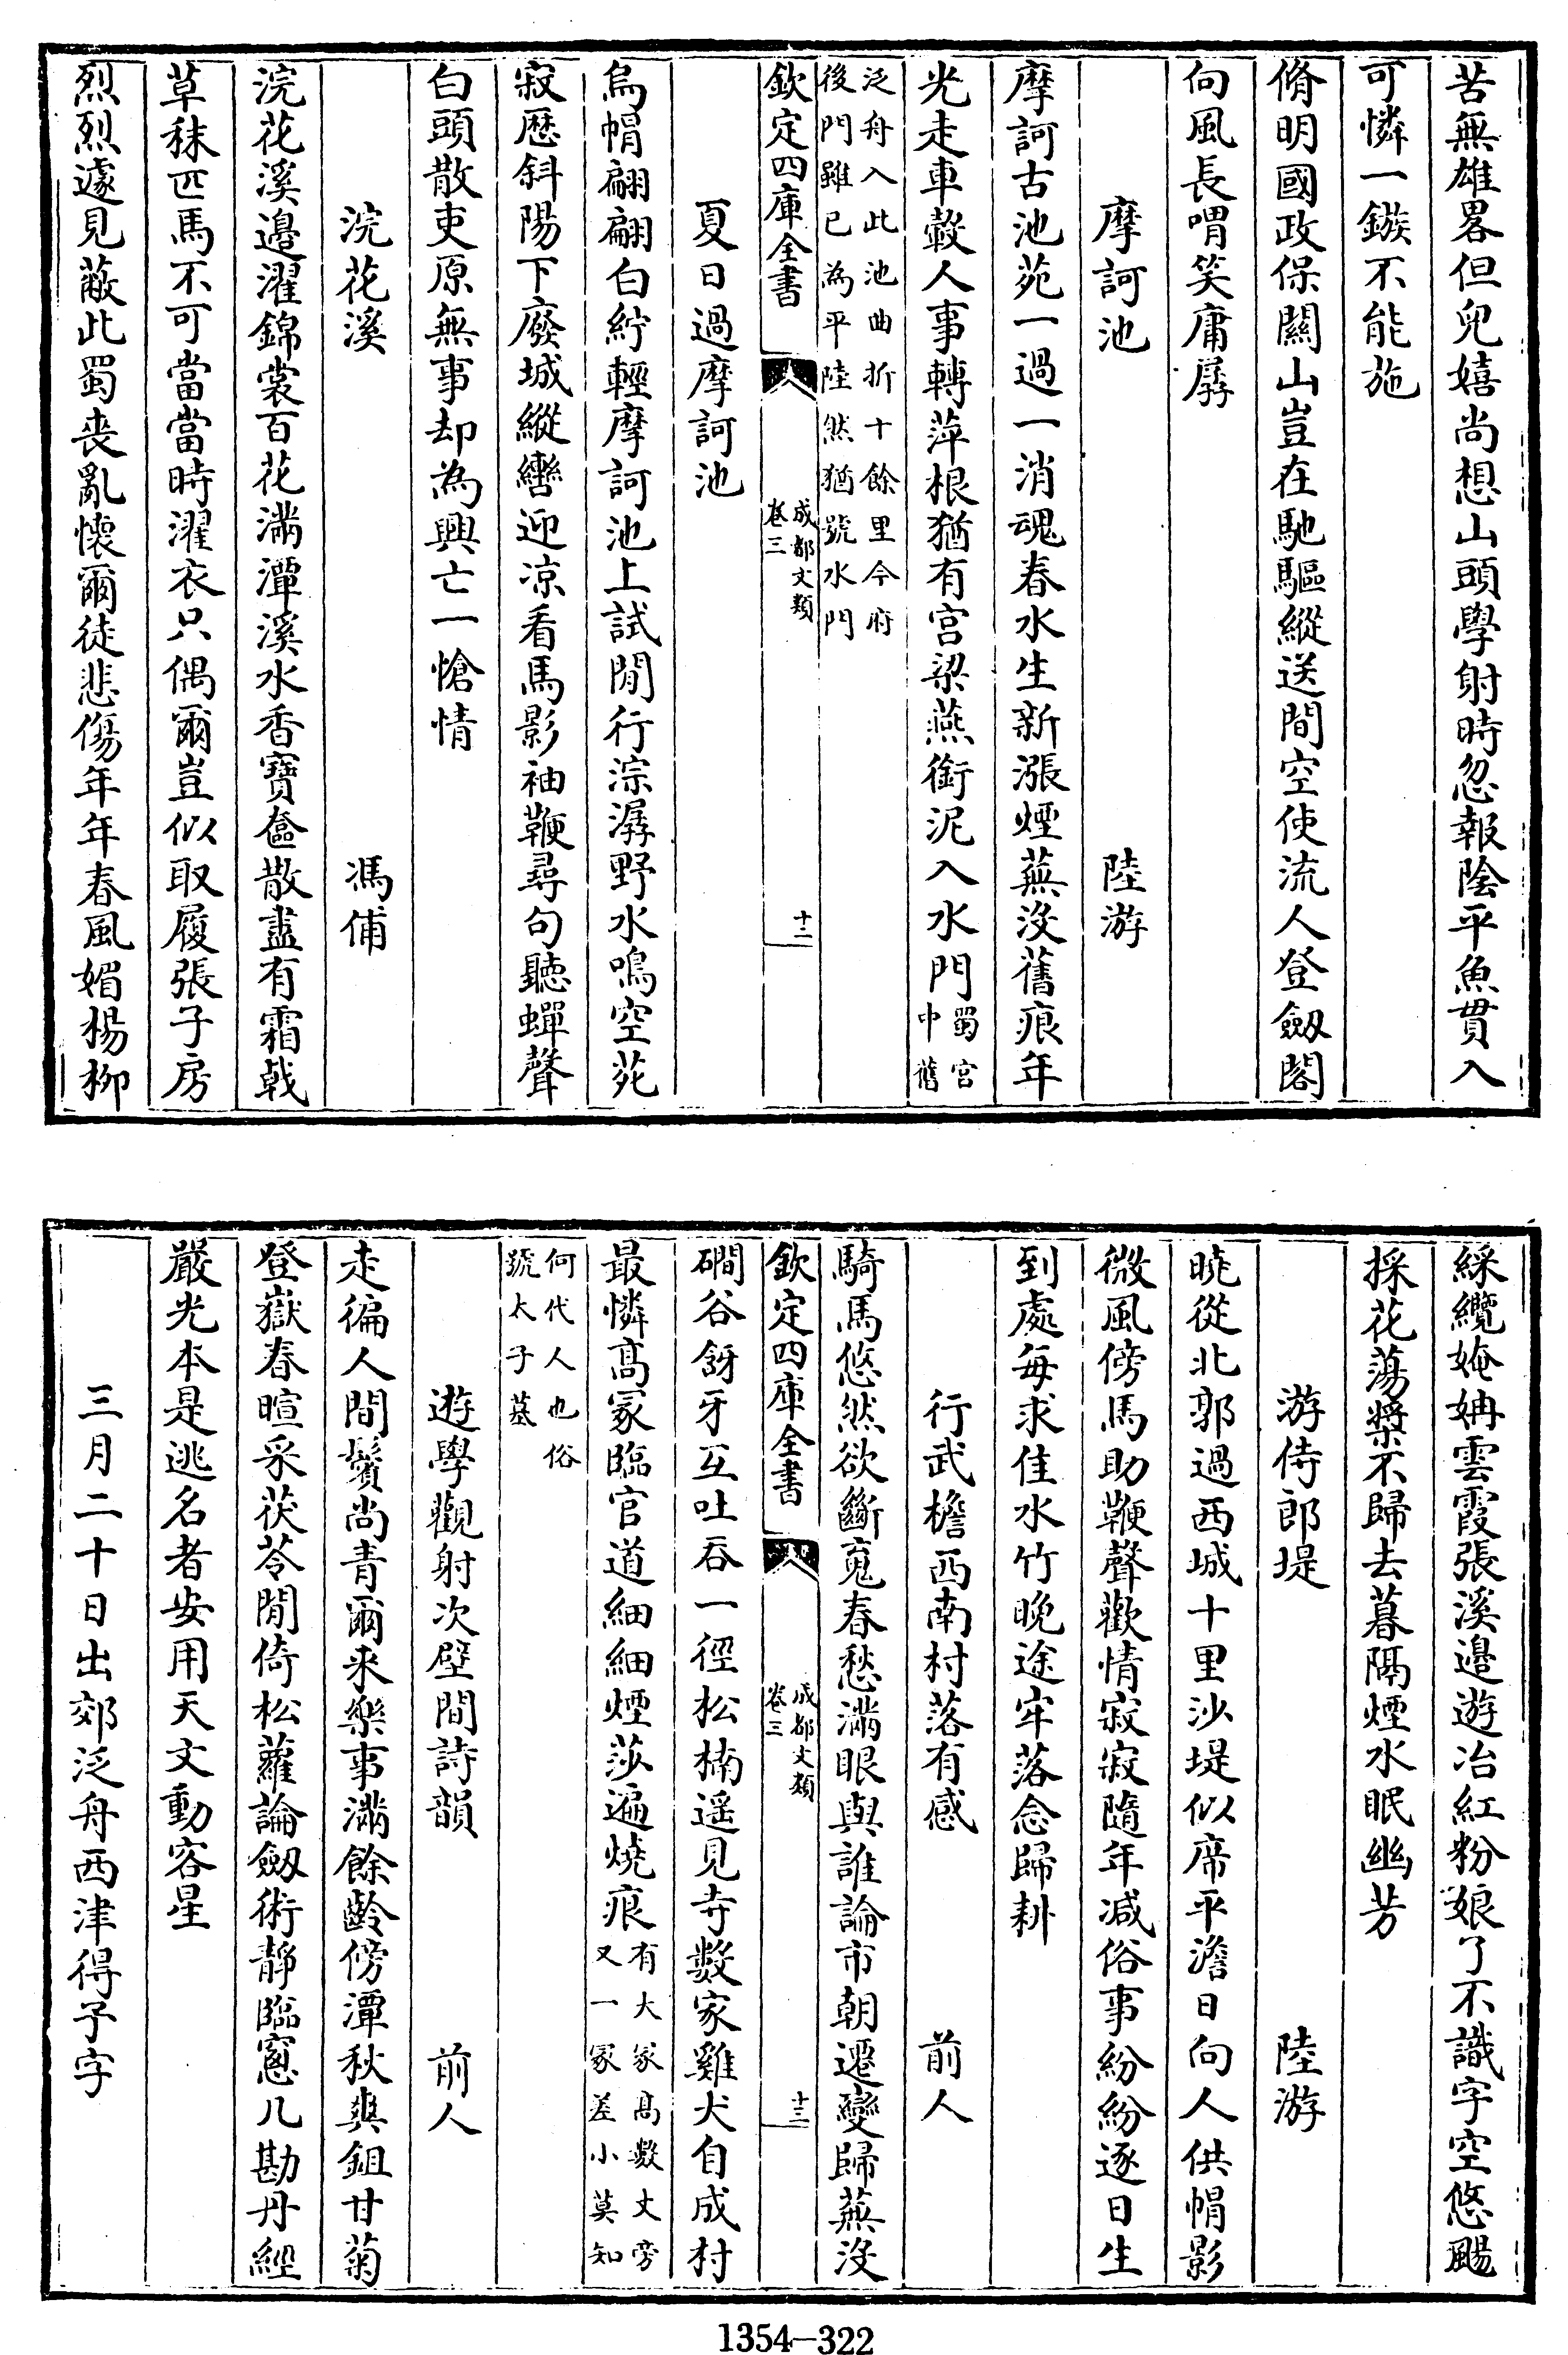 苦無雄畧但兒嬉尚想山頭學射時忽報陰平魚貫入
可憐一鏃不能施
脩明國政保關山豈在馳驅縱送間空使流人登劔閣
向風長喟笑庸孱
摩訶池 陸游
摩訶古池苑一過一消魂春水生新漲煙蕪没舊痕年
光走車轂人事轉萍根猶有宫梁燕銜泥入水門蜀宫中舊
泛舟入此池曲折十餘里今府
後門雖已為平陸然猶號水門
欽定四庫全書
成都文類
卷三
十二
夏日過摩訶池
烏帽翩翩白紵輕摩訶池上試閒行淙潺野水鳴空苑
寂歷斜陽下廢城縱轡迎凉看馬影袖鞭尋句聽蟬聲
白頭散吏原無事却為興亡一愴情
浣花溪 馮俌
浣花溪邉濯錦裳百花滿潭溪水香寶奩散盡有霜戟
草秣匹馬不可當當時濯衣只偶爾豈似取履張子房
烈烈遽見蔽此蜀喪亂懷爾徒悲傷年年春風媚楊柳
綵纜婠妠雲霞張溪邉遊冶紅粉娘了不識字空悠颺
採花蕩槳不歸去暮隔煙水眠幽芳
游侍郎堤 陸游
曉從北郭過西城十里沙堤似席平澹日向人供帽影
微風傍馬助鞭聲歡情寂寂隨年减俗事紛紛逐日生
到處每求佳水竹晚途牢落念歸耕
行武檐西南村落有感 前人
騎馬悠然欲斷䰟春愁滿眼與誰論市朝遷變歸蕪没
欽定四庫全書
成都文類
卷三
十三
磵谷谽牙互吐吞一徑松楠遥見寺數家雞犬自成村
最憐髙冢臨官道細細煙莎遍燒痕有大冢髙數丈旁又一冢差小莫知
何代人也俗
號太子墓
遊學觀射次壁間詩韻 前人
走徧人間鬢尚青爾来樂事滿餘齡傍潭秋爽鉏甘菊
登嶽春暄采茯苓閒倚松蘿論劔術靜臨窻几勘丹經
嚴光本是逃名者安用天文動客星
三月二十日出郊泛舟西津得予字
1354-322